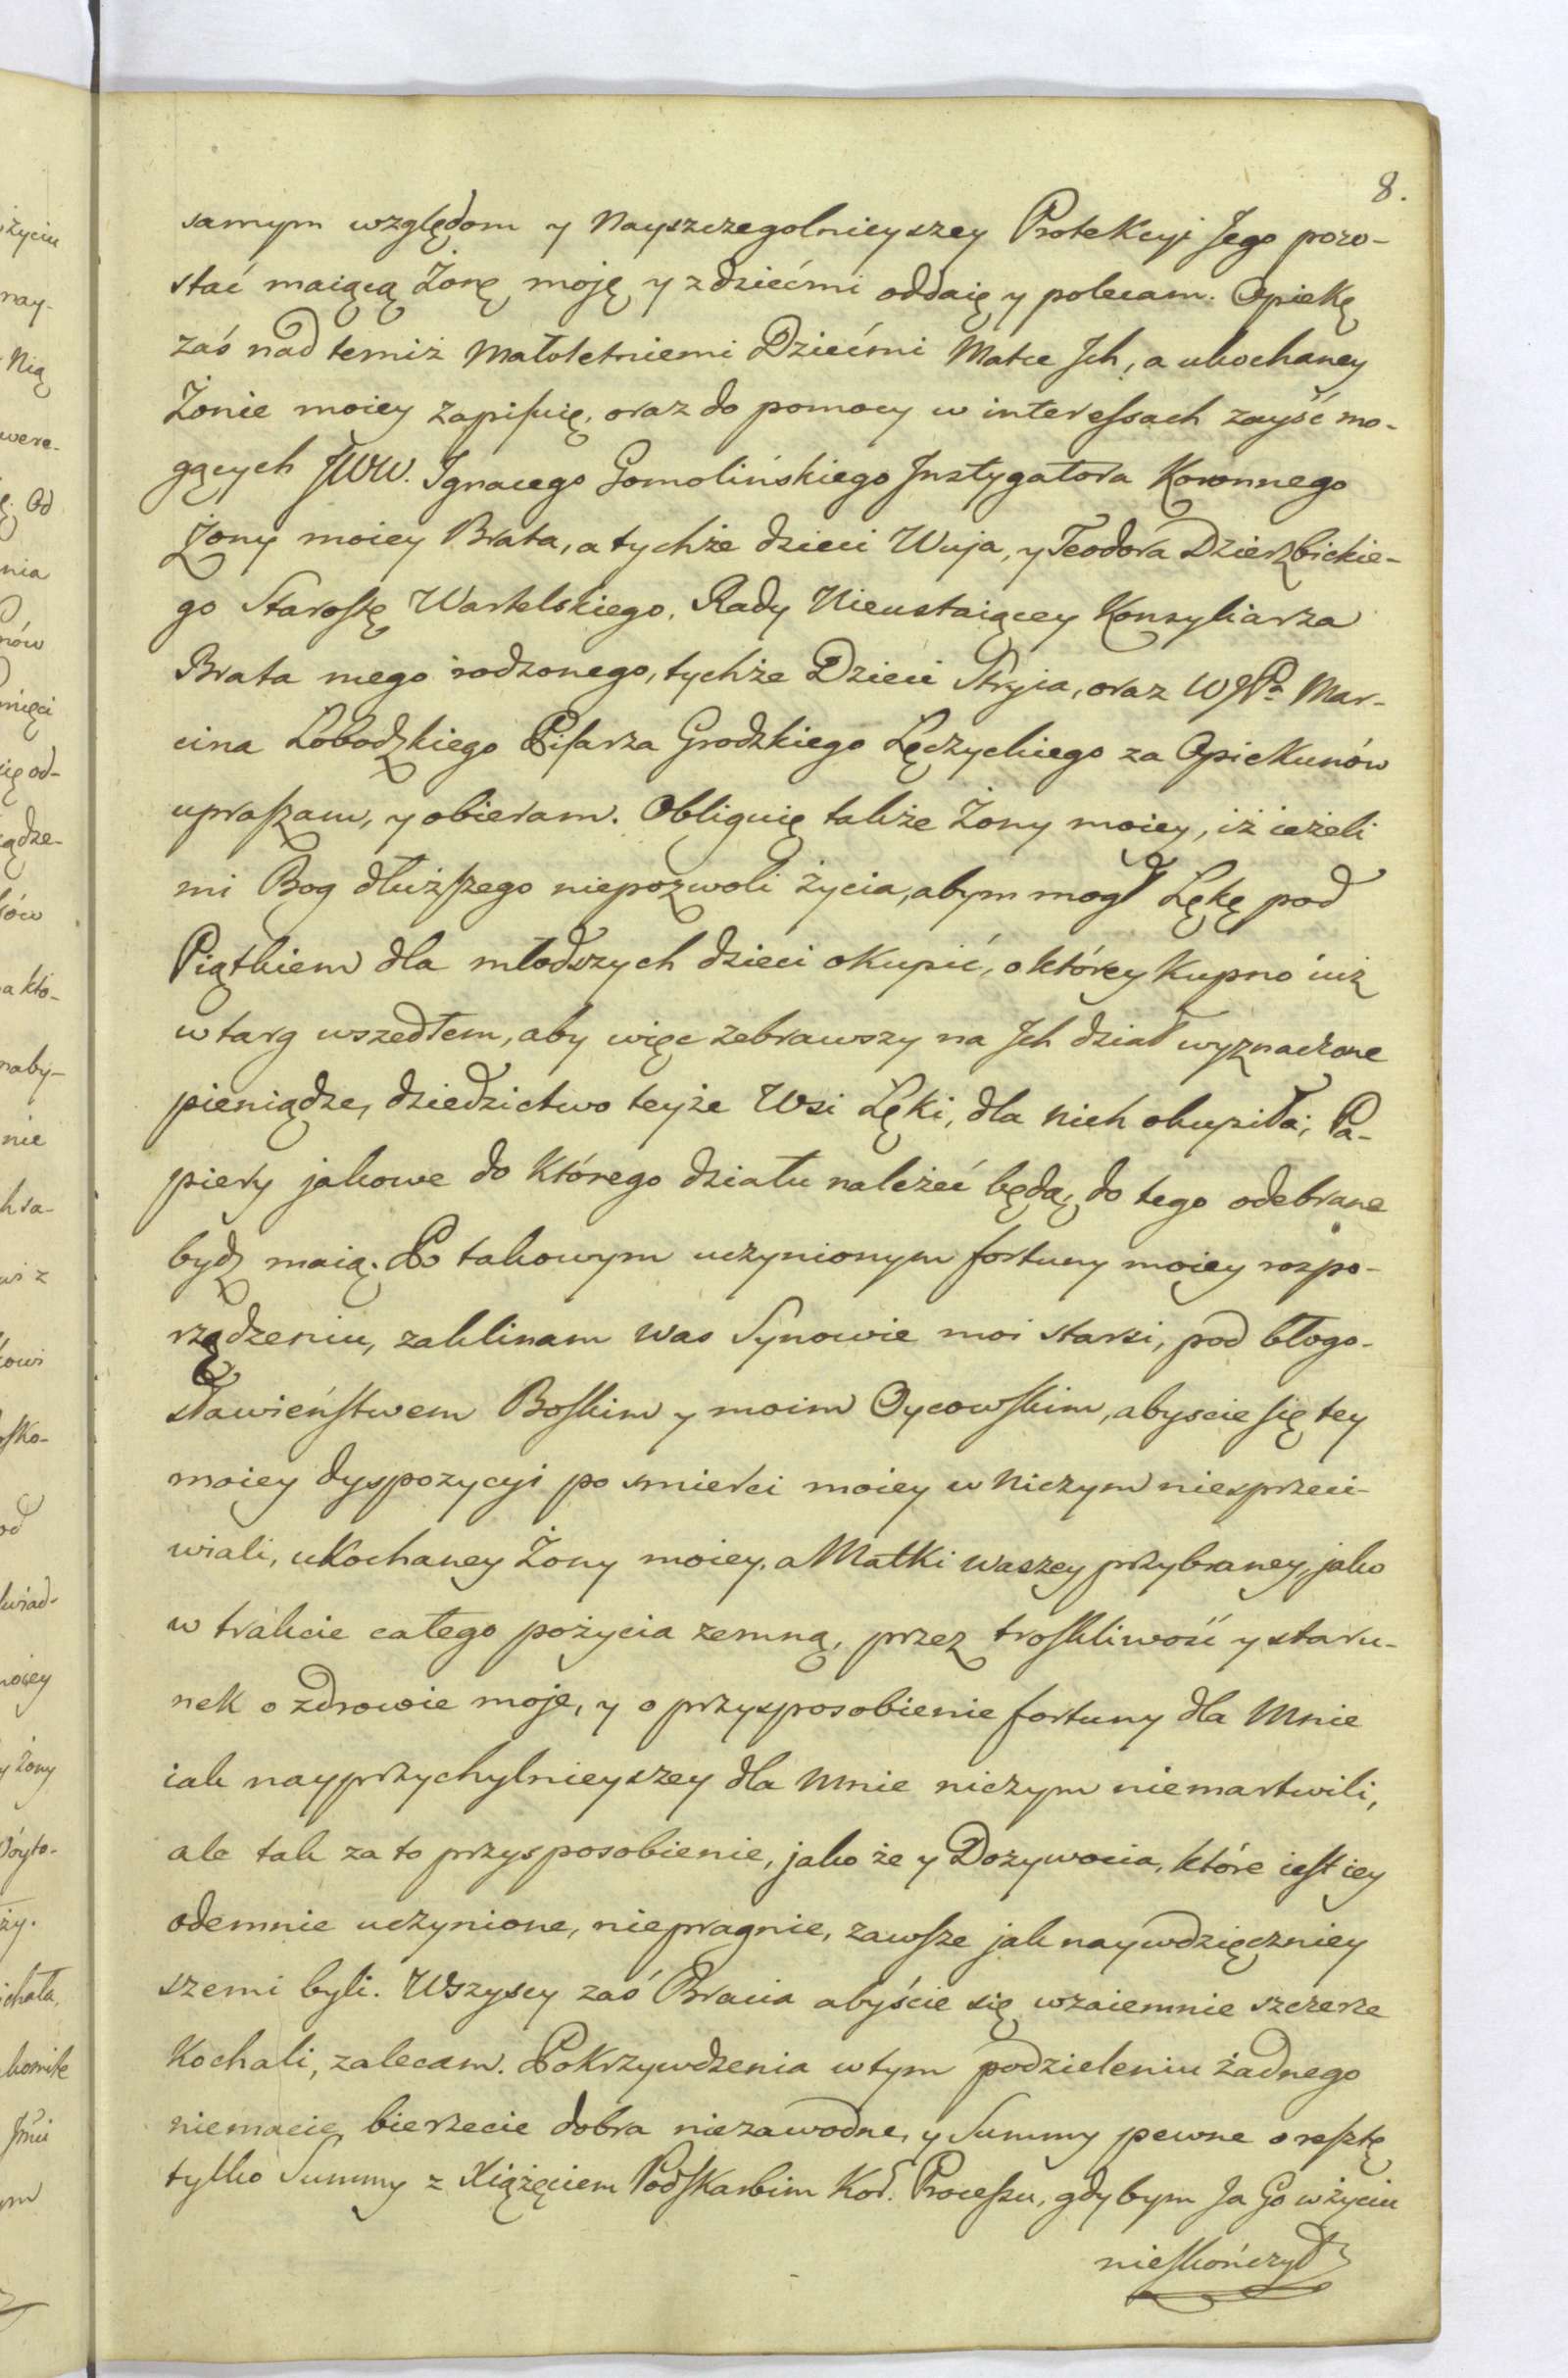 8.
samym względom y Nayszczegolnieyszey Protekcyi Jego pozo-
stać maiącą Żonę moję y z dziećmi oddaię y polecam. Opiekę
zaś nad temiż Małoletniemi Dziećmi Matce Jch, a ukochaney
Żonie moiey zapisuię, oraz do pomocy w interessach zayść mo-
gących JWW. Ignacego Gomolińskiego Jnstygatora Koronnego
Żony moiey Brata, a tychże dzieci Wuja, y Teodora Dzierzbickie-
go Starostę Wartelskiego, Rady Nieustaiącey Konsyliarza
Brata mego rodzonego, tychże Dzieci Stryia, oraz WJPa Mar-
cina Łobodzkiego Pisarza Grodzkiego Łęczyckiego za Opiekunów
upraszam, y obieram. Obliguię także Żony moiey, iż ieżeli
mi Bog dłuższego niepozwoli życia, abym mogł Łękę pod
Piątkiem dla młodszych dzieci okupić, o którey kupno iuż
w targ wszedłem, aby więc zebrawszy na Jch dział wyznaczone
pieniądze, dziedzictwo teyże Wsi Łęki, dla nich okupiła; Pa-
piery jakowe do którego działu należeć będą, do tego odebrane
bydź maią. Po takowym uczynionym fortuny moiey rozpo-
rządzeniu, zaklinam Was Synowie moi starsi, pod błogo-
sławieństwem Boskim y moim Oycowskim, abyscie się tey
moiey dyspozycyi po smierci moiey w niczym niesprzeci-
wiali, ukochaney Żony moiey, a Matki waszey przybraney, jako
w trakcie całego pożycia zemną, przez troskliwość y staru-
nek o zdrowie moje, y o przysposobienie fortuny dla Mnie
iak nayprzychylnieyszey dla Mnie niczym niemartwili,
ale tak za to przysposobienie, jako że y Dozywocia, które iest iey
odemnie uczynione, niepragnie, zawsze jak naywdzięczniey
szemi byli. Wszyscy zaś Bracia abyście się wzaiemnie szczerze
Kochali, zalecam. Pokrzywdzenia w tym podzieleniu żadnego
niemacie, bierzecie dobra niezawodne, y Summy pewne o resztę
tylko Summy z Xiążęciem Podskarbim Kor. Processu, gdybym Ja Go w życiu
nieskończył